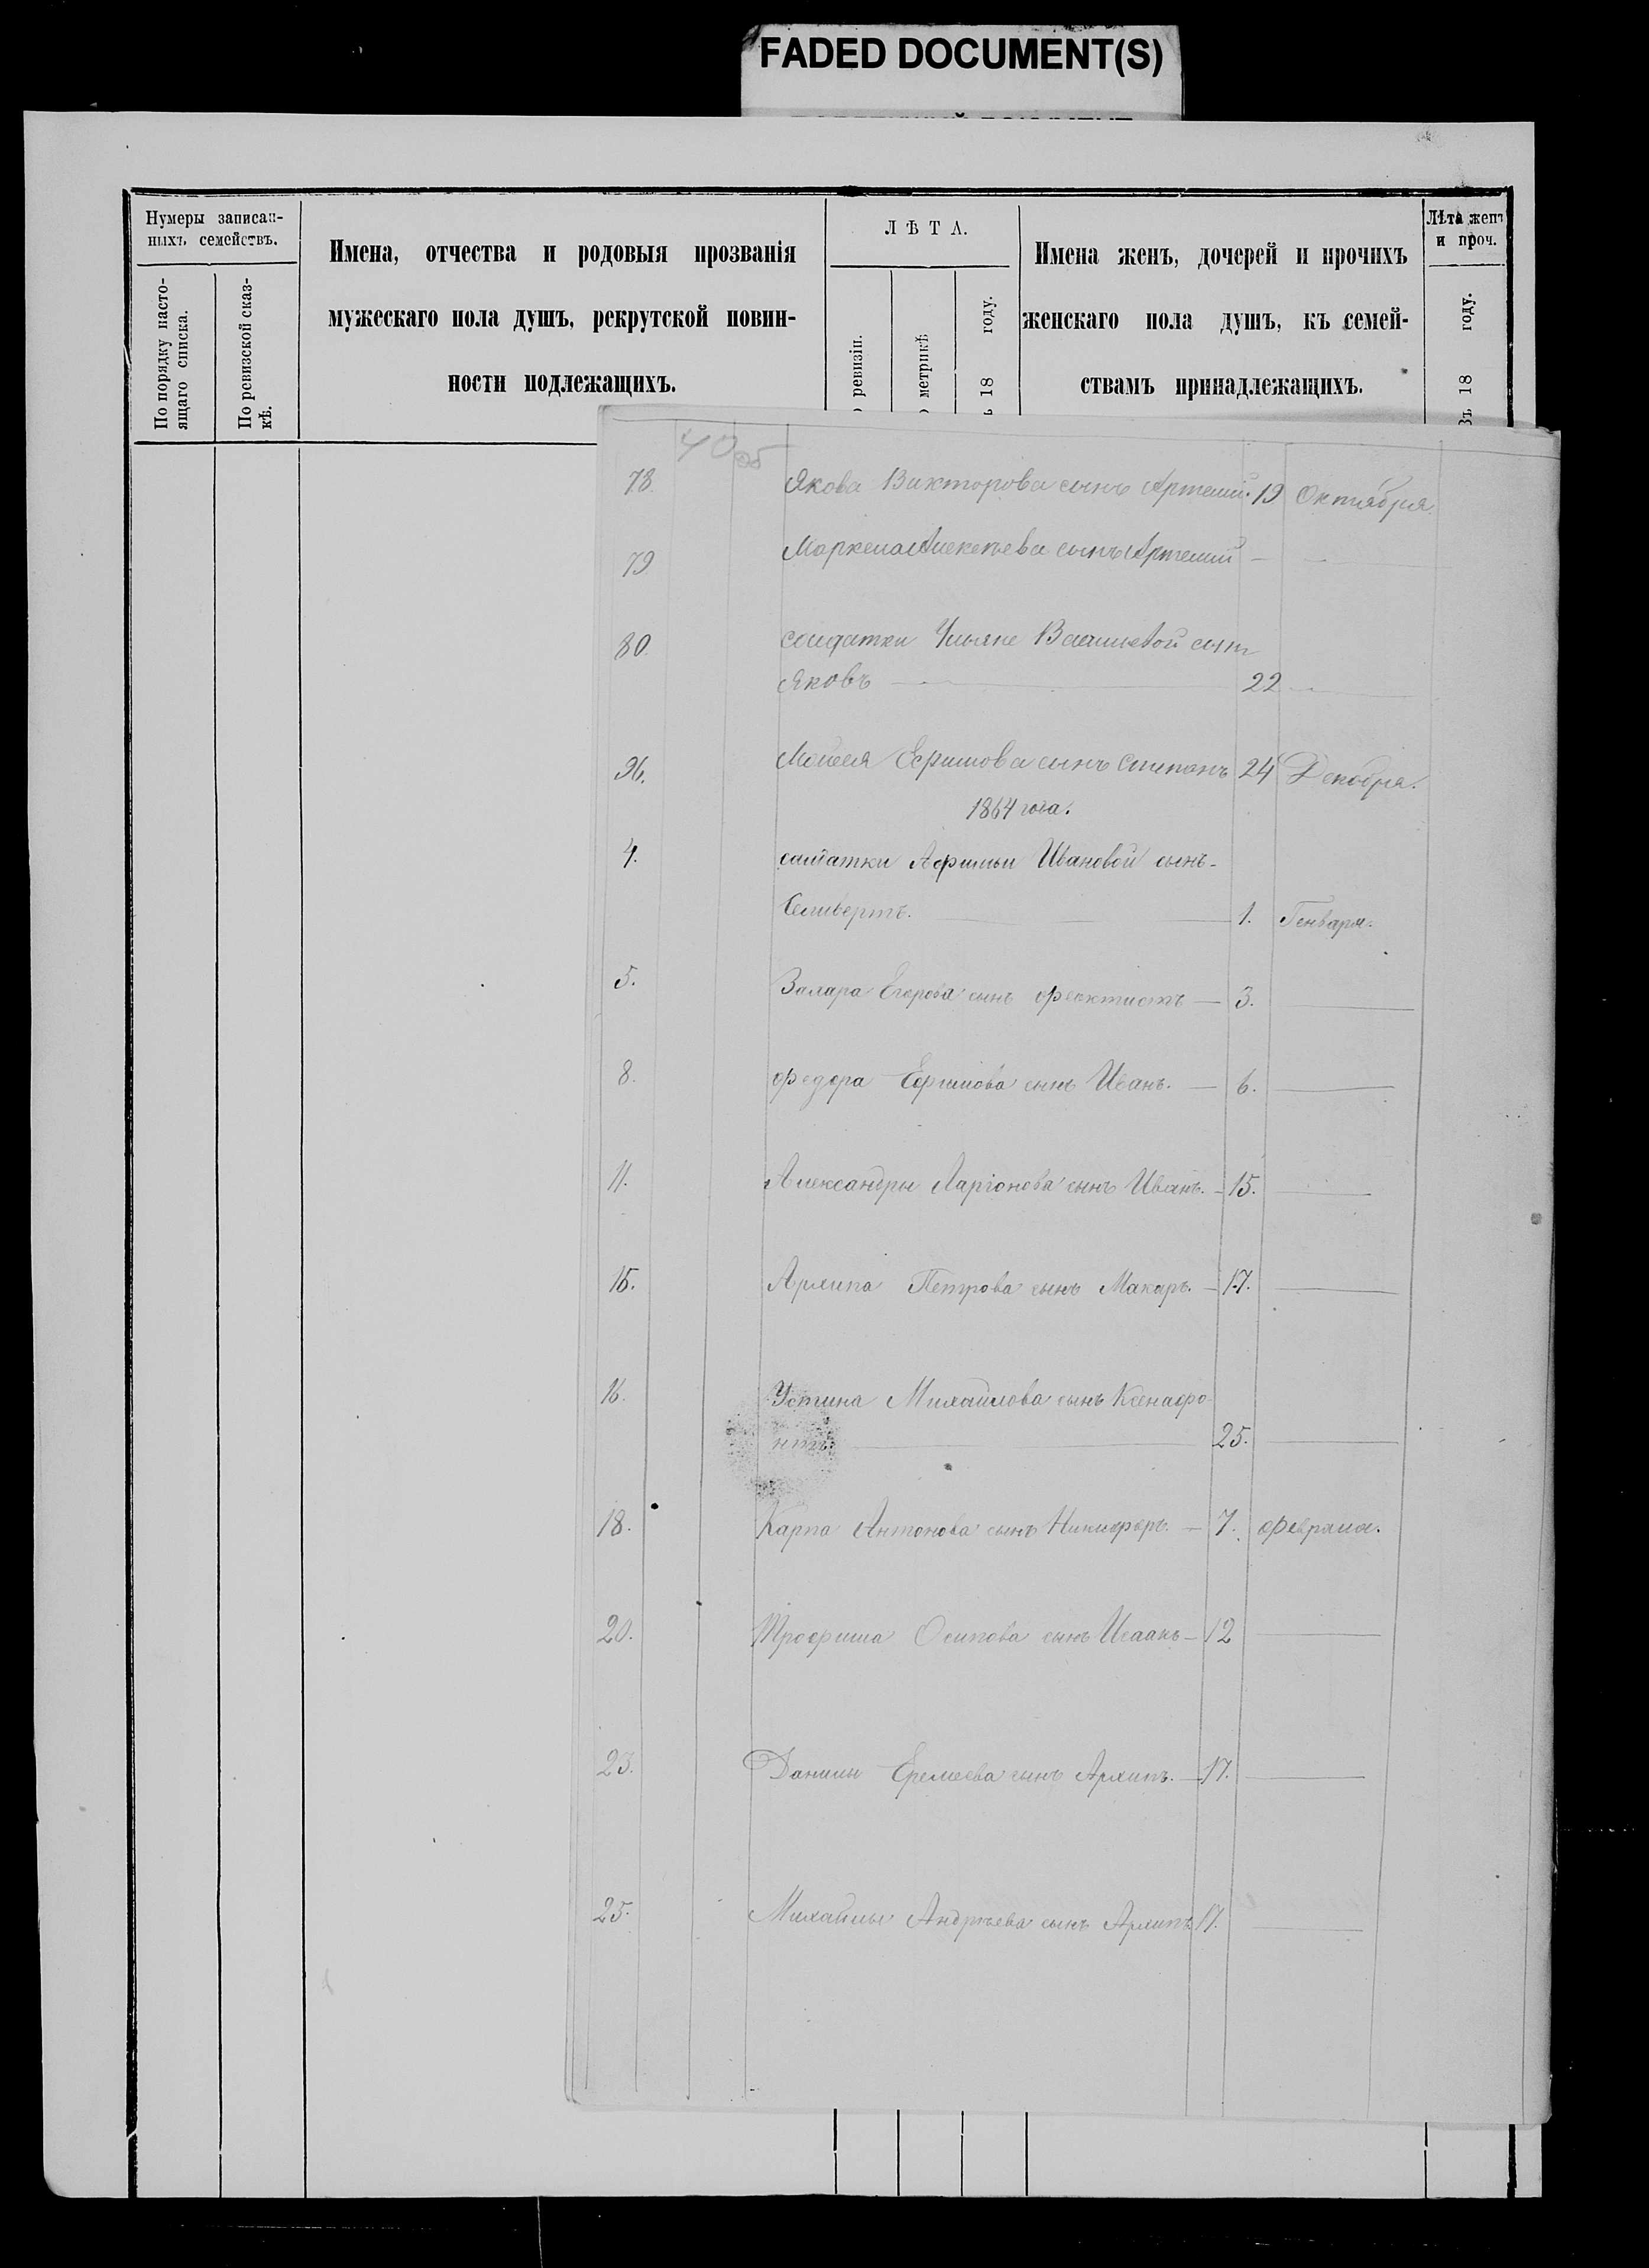 FADED DOCUMENT(S)
Нумеры записан-
ныхъ семействъ.
По порядку насто-
ящаго списка.
По ревизской сказ-
кѣ.
Имена, отчества и родовыя прозванія
мужескаго пола душъ, рекрутской повин-
ности подлежащихъ.
ЛѢТА.
ревизіи.
метрикѣ
18 году.
Имена женъ, дочерей и прочихъ
женскаго пола душъ, къ семей-
ствамъ принадлежащихъ.
Лѣта женъ
и проч.
Въ 18 году.
40 об
78. Якова Викторова сынъ Артемий. 19 Октября.
79 Маркела Алексѣева сынъ Артемий — —
80. солдатки Ульяне Васильевой сынъ
Яковъ — 22 —
96. Моисея Ефимова сынъ Степанъ 24 Декабря.
1864 года.
4. салдатки Афимьи Ивановой сынъ-
Селивертъ. — 1. Генваря.
5. Захара Егорова сынъ Феоктистъ — 3. —
8. Федора Ефимова сынъ Иванъ. — 6. —
11. Александры Ларіонова сынъ Иванъ. — 15. —
15. Архипа Петрова сынъ Макаръ. — 17. —
16. Устина Михайлова сынъ Ксенафо-
нтъ. — 25. —
18. Карпа Антонова сынъ Никифоръ. — 7. Февраля.
20. Трофима Осипова сынъ Исаакъ — 12 —
23. Данилы Еремеева сынъ Архипъ. — 17. —
25. Михайлы Андрѣева сынъ Архипъ 17. —